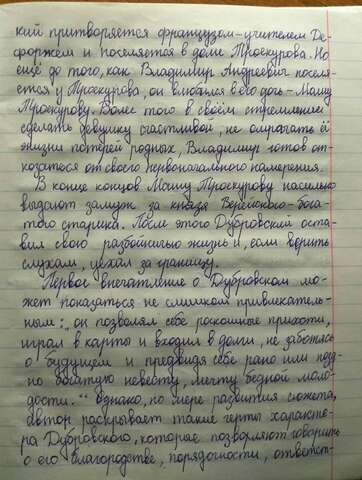 кий притворяется французом-учителем Де-
форжем и поселяется в доме Троекурова. Но
ещё до того, как Владимир Андреевич поселя-
ется у Троекурова, он влюбился в его дочь - Машу
Троекурову. Более того в своём стремлении
сделать девушку счастливой, не омрачать её
жизни потерей родных, Владимир готов от-
казаться от своего первоначального намерения.
В конце концов Машу Троекурову насильно
выдают замуж за князя Верейского-бога-
того старика. После этого Дубровский оста-
вил свою разбойничью жизнь и, если верить
слухам, уехал за границу.
Первое впечатление о Дубровском мо-
жет показаться не слишком привлекатель-
ным: „он позволял себе роскошные прихоти,
играл в карты и входил в долги, не заботясь
о будущем и предвидя себе рано или позд-
но богатую невесту, мечту бедной моло-
дости." Однако, по мере развития сюжета,
автор раскрывает такие черты характе-
ра Дубровского, которые позволяют говорить
о его благородстве, порядочности, ответст-